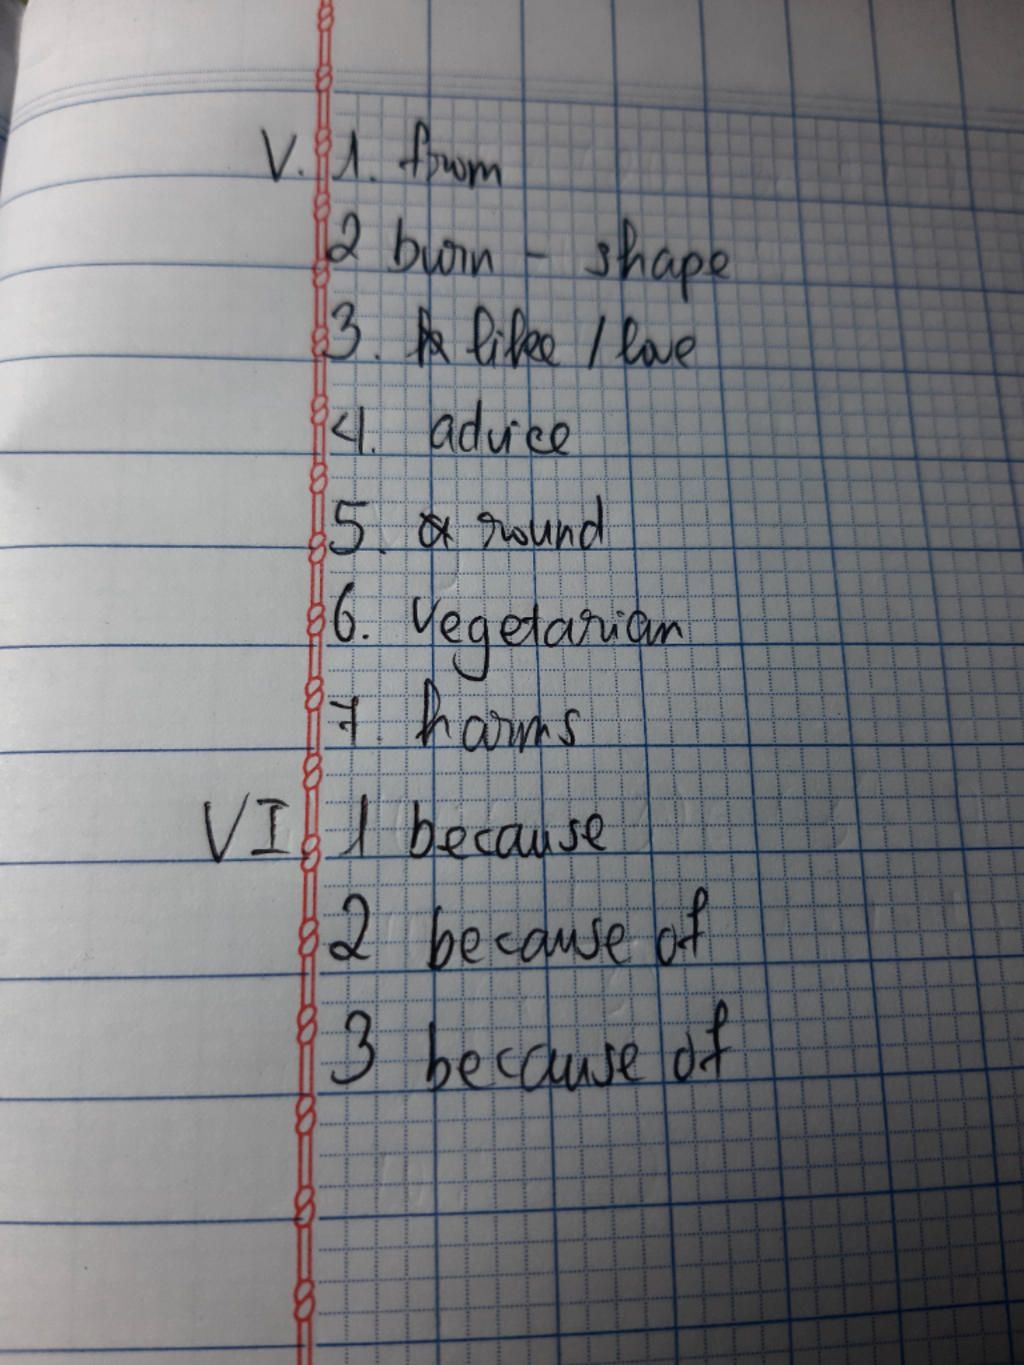 V. 1. from
2 burn - shape
3. like / love
4. advice
5. a round
6. vegetarian
7. harms
VI 1 because
2 because of
3 because of